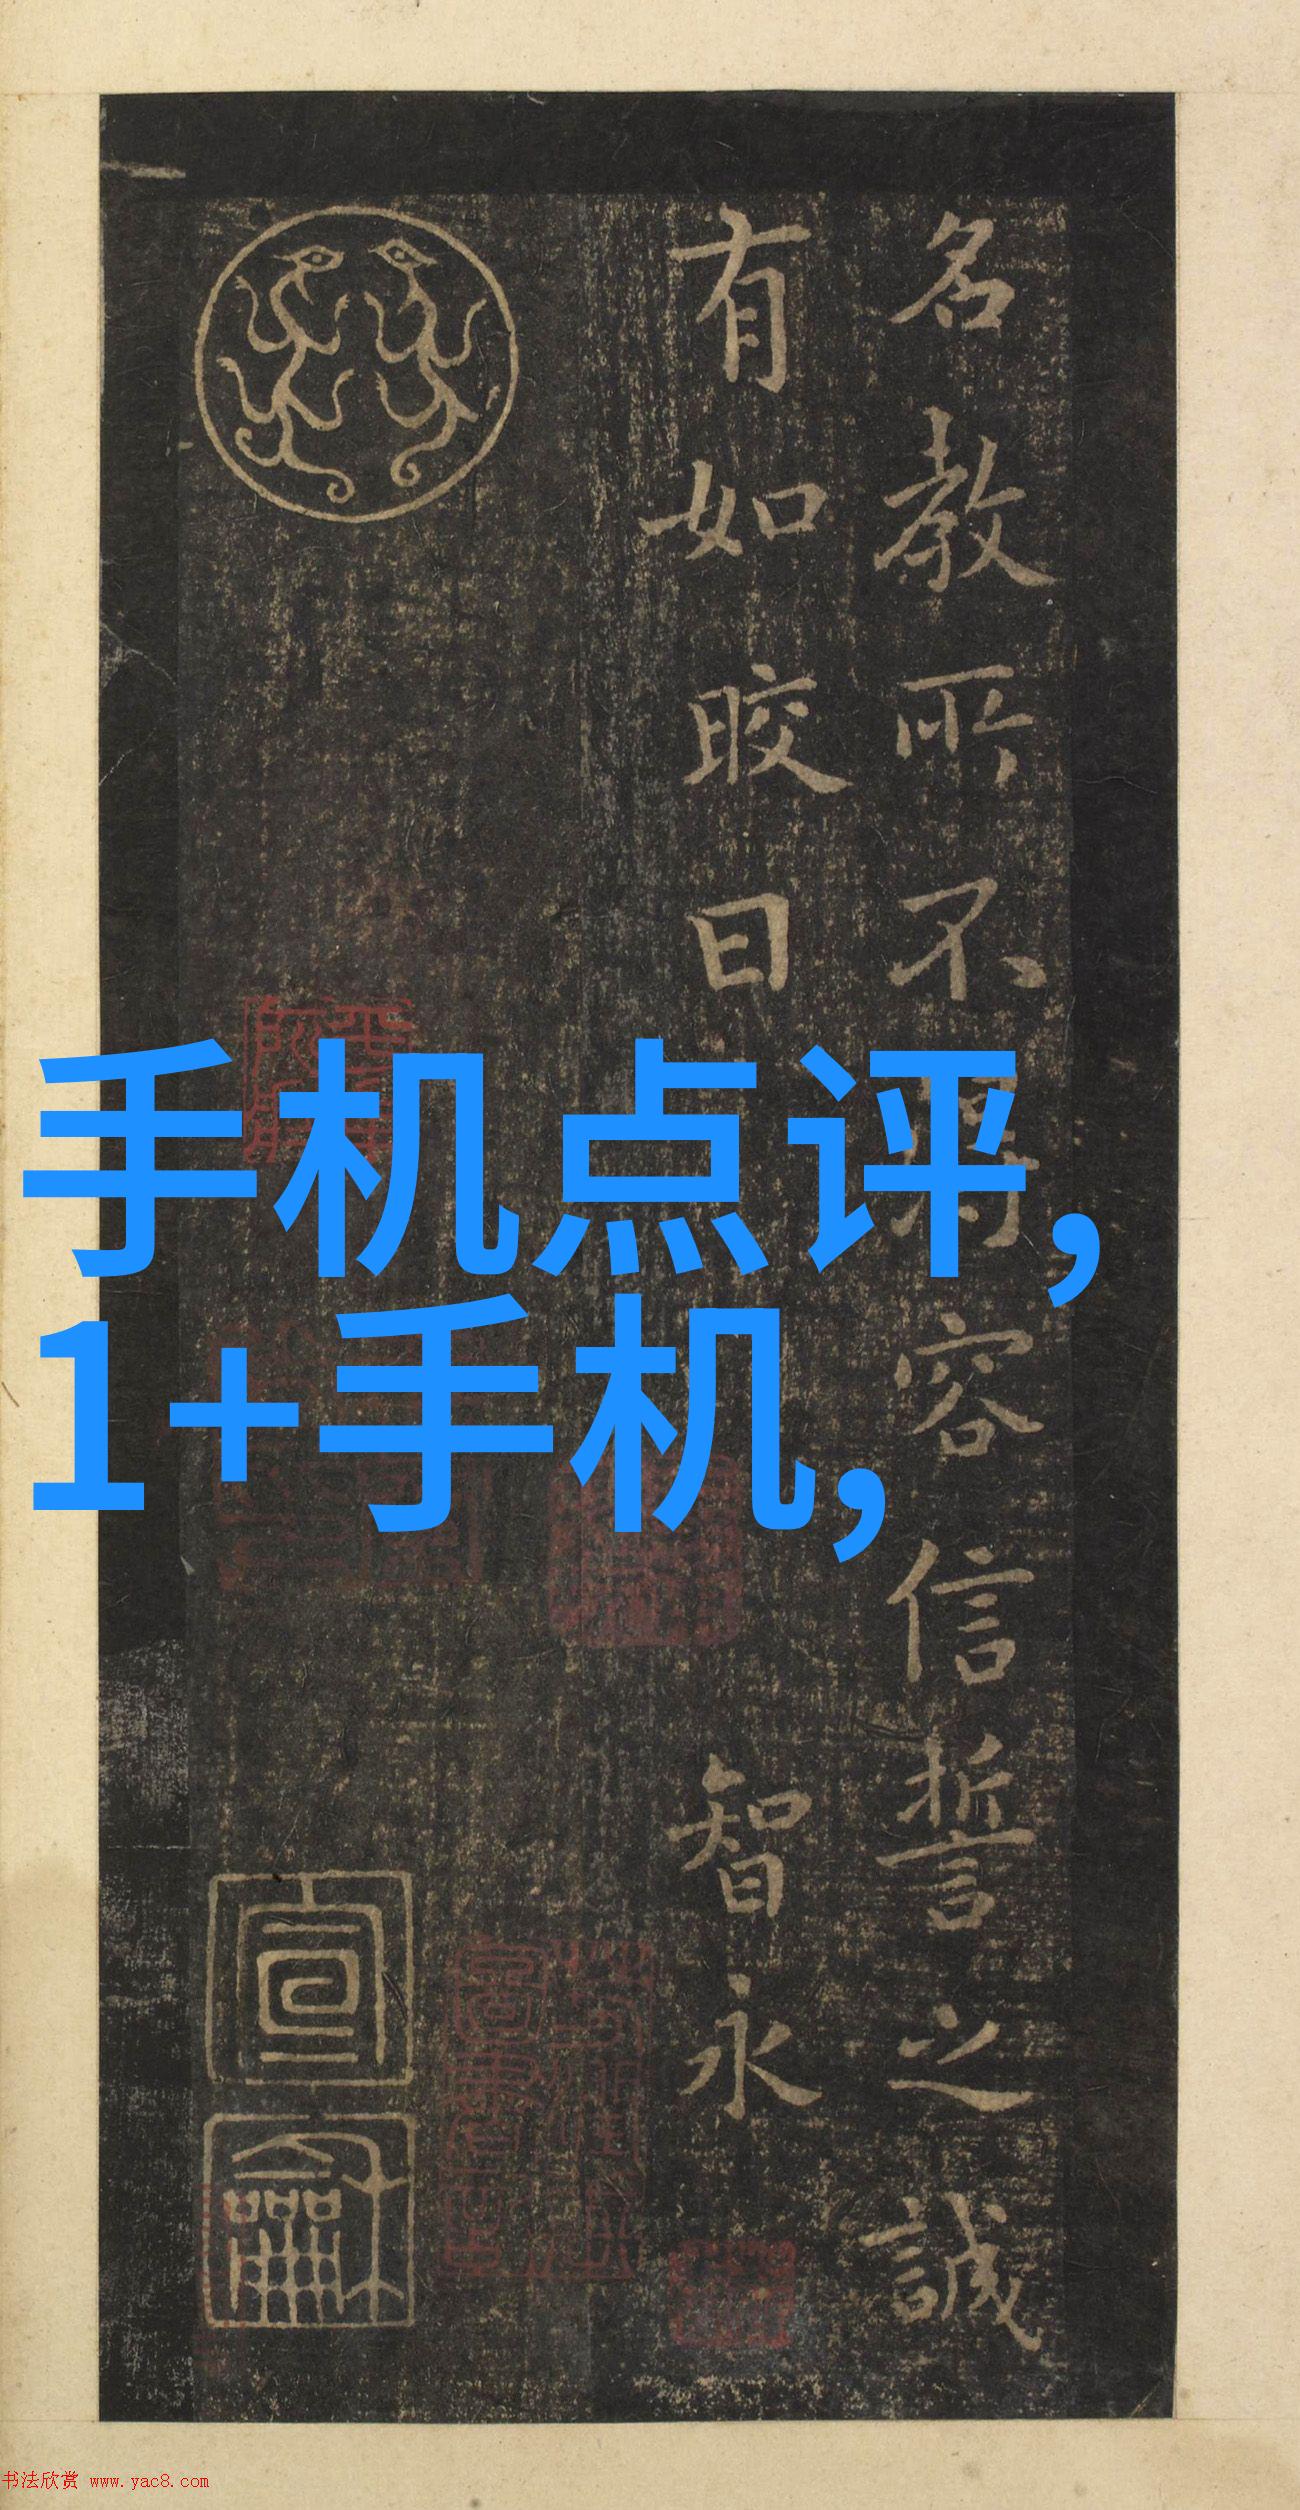 名教所不得容信誓之誠
有如晈日 智永
手机点评,
1+手机,
宣
龢
书法欣赏 www.yac8.com